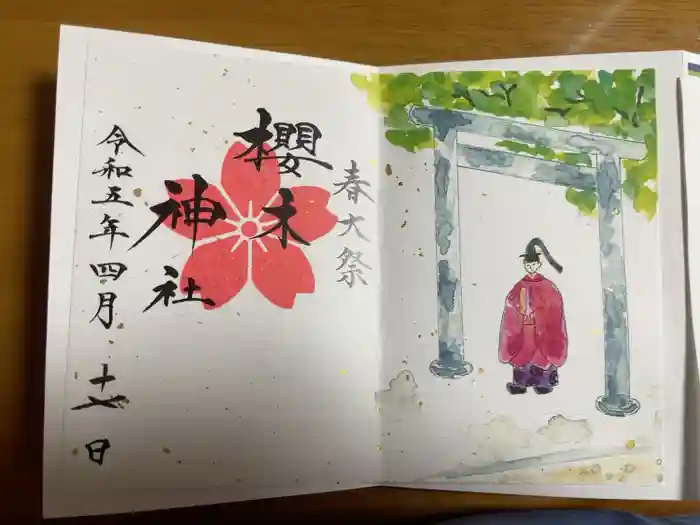 春大祭
櫻木
神社
令和五年四月十七日